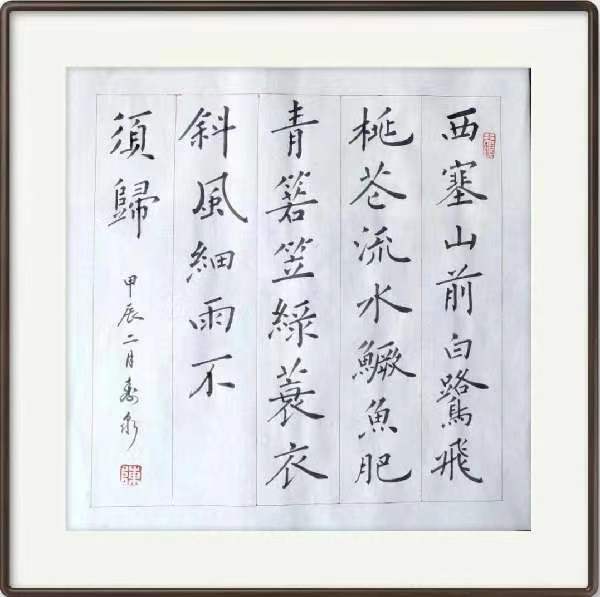 西塞山前白鷺飛
桃花流水鱖魚肥
青箬笠綠蓑衣
斜風細雨不
須歸
甲辰二月壽泉
陳